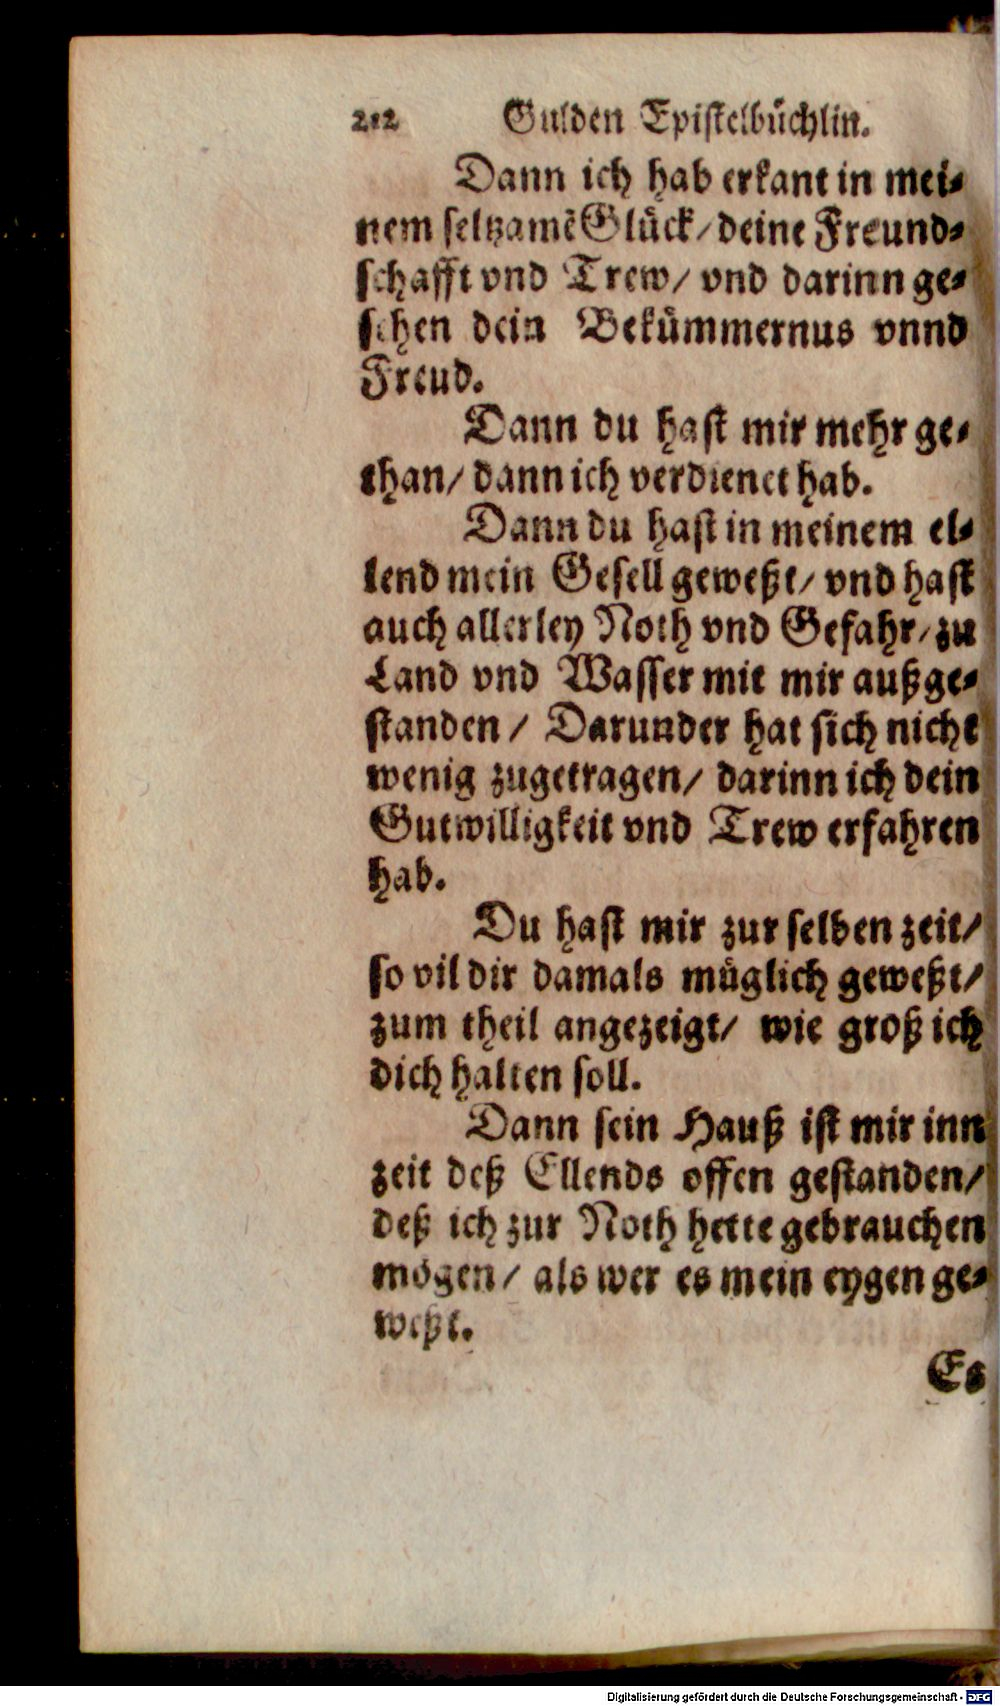 212 Gulden Epistelbüchlin.
Dann ich hab erkant in mei-
nem seltzamẽ Glück/ deine Freund-
schafft vnd Trew/ vnd darinn ge-
sehen dein Bekümmernus vnnd
Freud.
Dann du hast mir mehr ge-
than/ dann ich verdienet hab.
Dann du hast in meinem el-
lend mein Gesell geweßt/ vnd hast
auch allerley Noth vnd Gefahr/ zu
Land vnd Wasser mit mir außge-
standen/ Darunder hat sich nicht
wenig zugetragen/ darinn ich dein
Gutwilligkeit vnd Trew erfahren
hab.
Du hast mir zur selben zeit/
so vil dir damals müglich geweßt/
zum theil angezeigt/ wie groß ich
dich halten soll.
Dann sein Hauß ist mir inn
zeit deß Ellends offen gestanden/
deß ich zur Noth hette gebrauchen
mögen/ als wer es mein eygen ge-
weßt.
Es
Digitalisierung gefördert durch die Deutsche Forschungsgemeinschaft - DFG